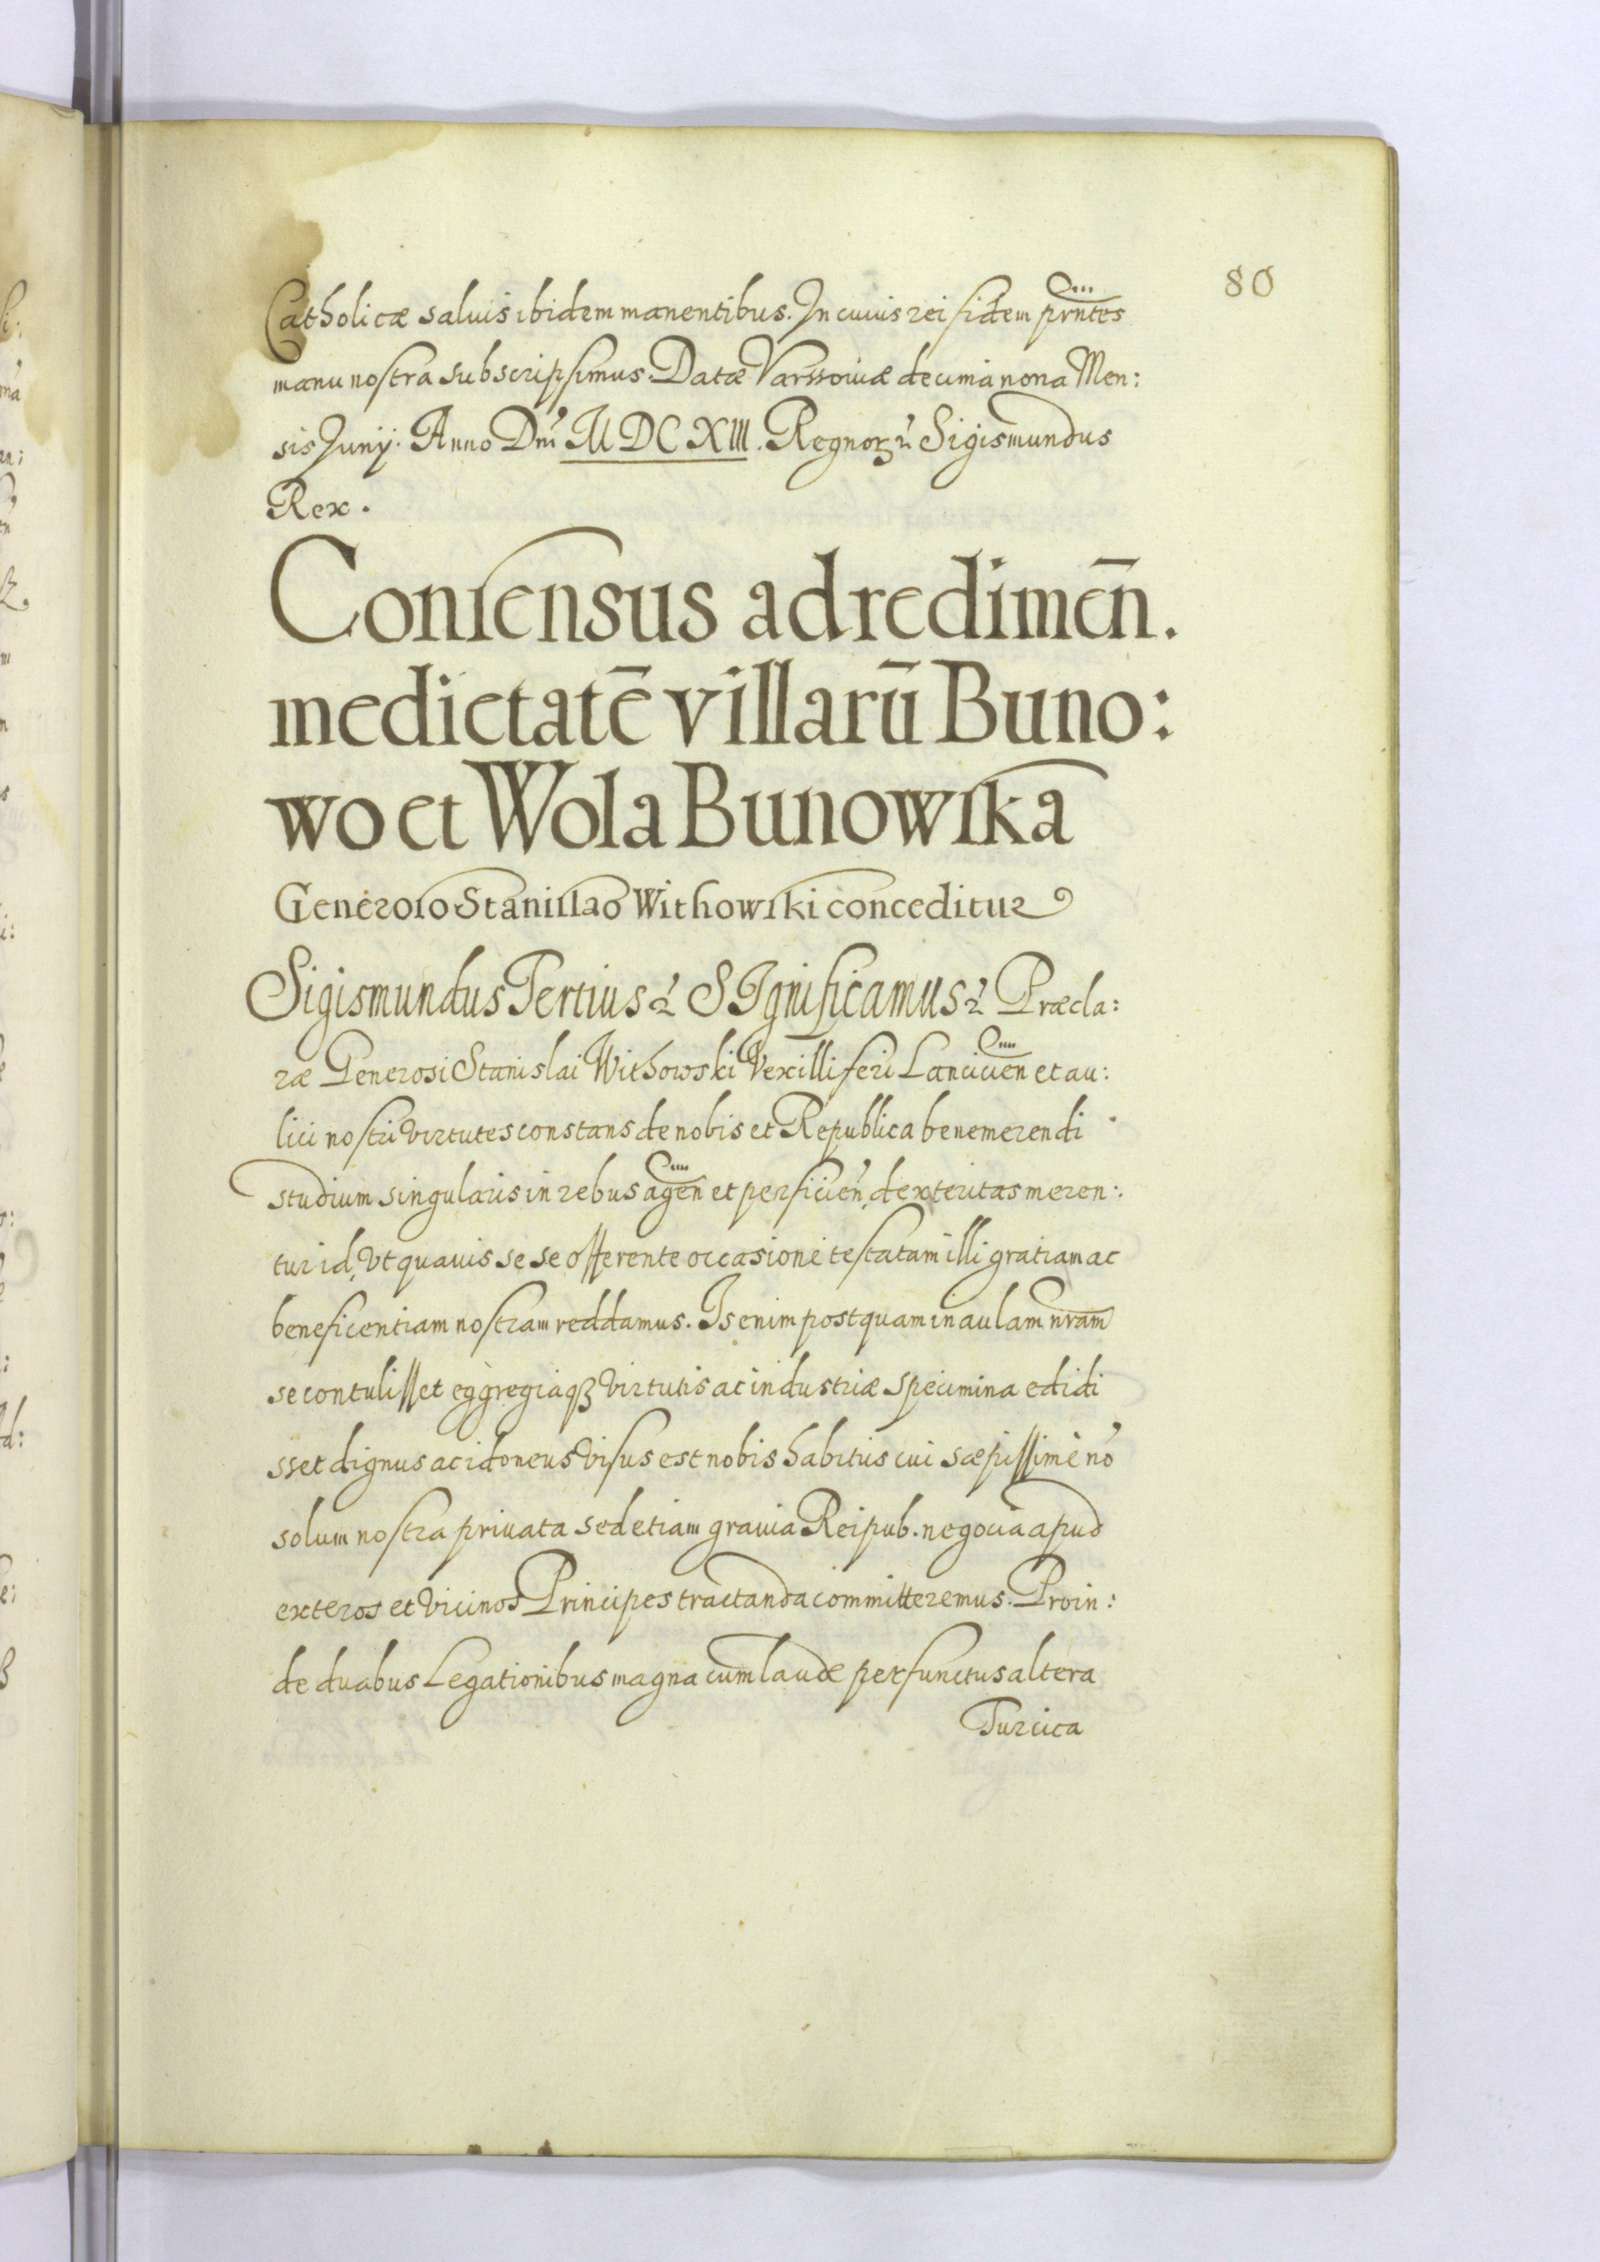 80
Catholicæ saluis ibidem manentibus. In cuius rei fidem prntes
manu nostra subscripsimus. Datæ Varssoviæ decima nona Men:
sis Junij. Anno Dni MDCXIII. Regnor. Sigismundus
Rex.
Consensus ad redimen̄.
medietatē villarū Buno:
wo et Wola Bunowska
Generoso Stanislao Withowski conceditur
Sigismundus Tertius SIgnificamus Præcla:
ræ Generosi Stanislai Withowski Vexilliferi Lancicien et au:
lici nostri virtutes constans de nobis et Republica benemerendi
studium singularis in rebus agen et perficien dexteritas meren:
tur id, Vt quauis se se offerente occasione testatam illi gratiam ac
beneficentiam nostram reddamus. Is enim postquam in aulam nram
se contulisset eggregiaqꝫ virtutis ac industriæ specimina edidi
sset dignus ac idoneus visus est nobis habitus cui sæpissimè nō
solum nostra priuata sed etiam grauia Reipub. negocia apud
exteros et vicinos Principes tractanda committeremus. Proin:
de duabus Legationibus magna cum laude perfunctus altera
Turcica